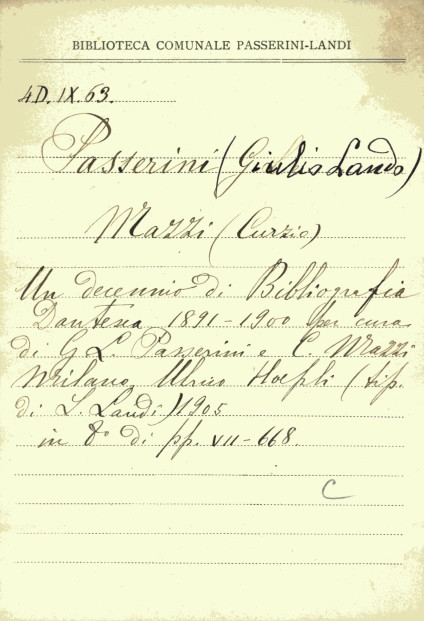 BIBLIOTECA COMUNALE PASSERINI-LANDI
4D.IX.63.
Passerini (Giulio Lando)
Mazzi (Curzio)
Un decennio di Bibliografia
Dantesca 1891-1900 per cura
di G. L. Passerini e C. Mazzi
Milano, Ulrico Hoepli (tip.
di L. Landi) 1905
in 8° di pp. VII-668.
C